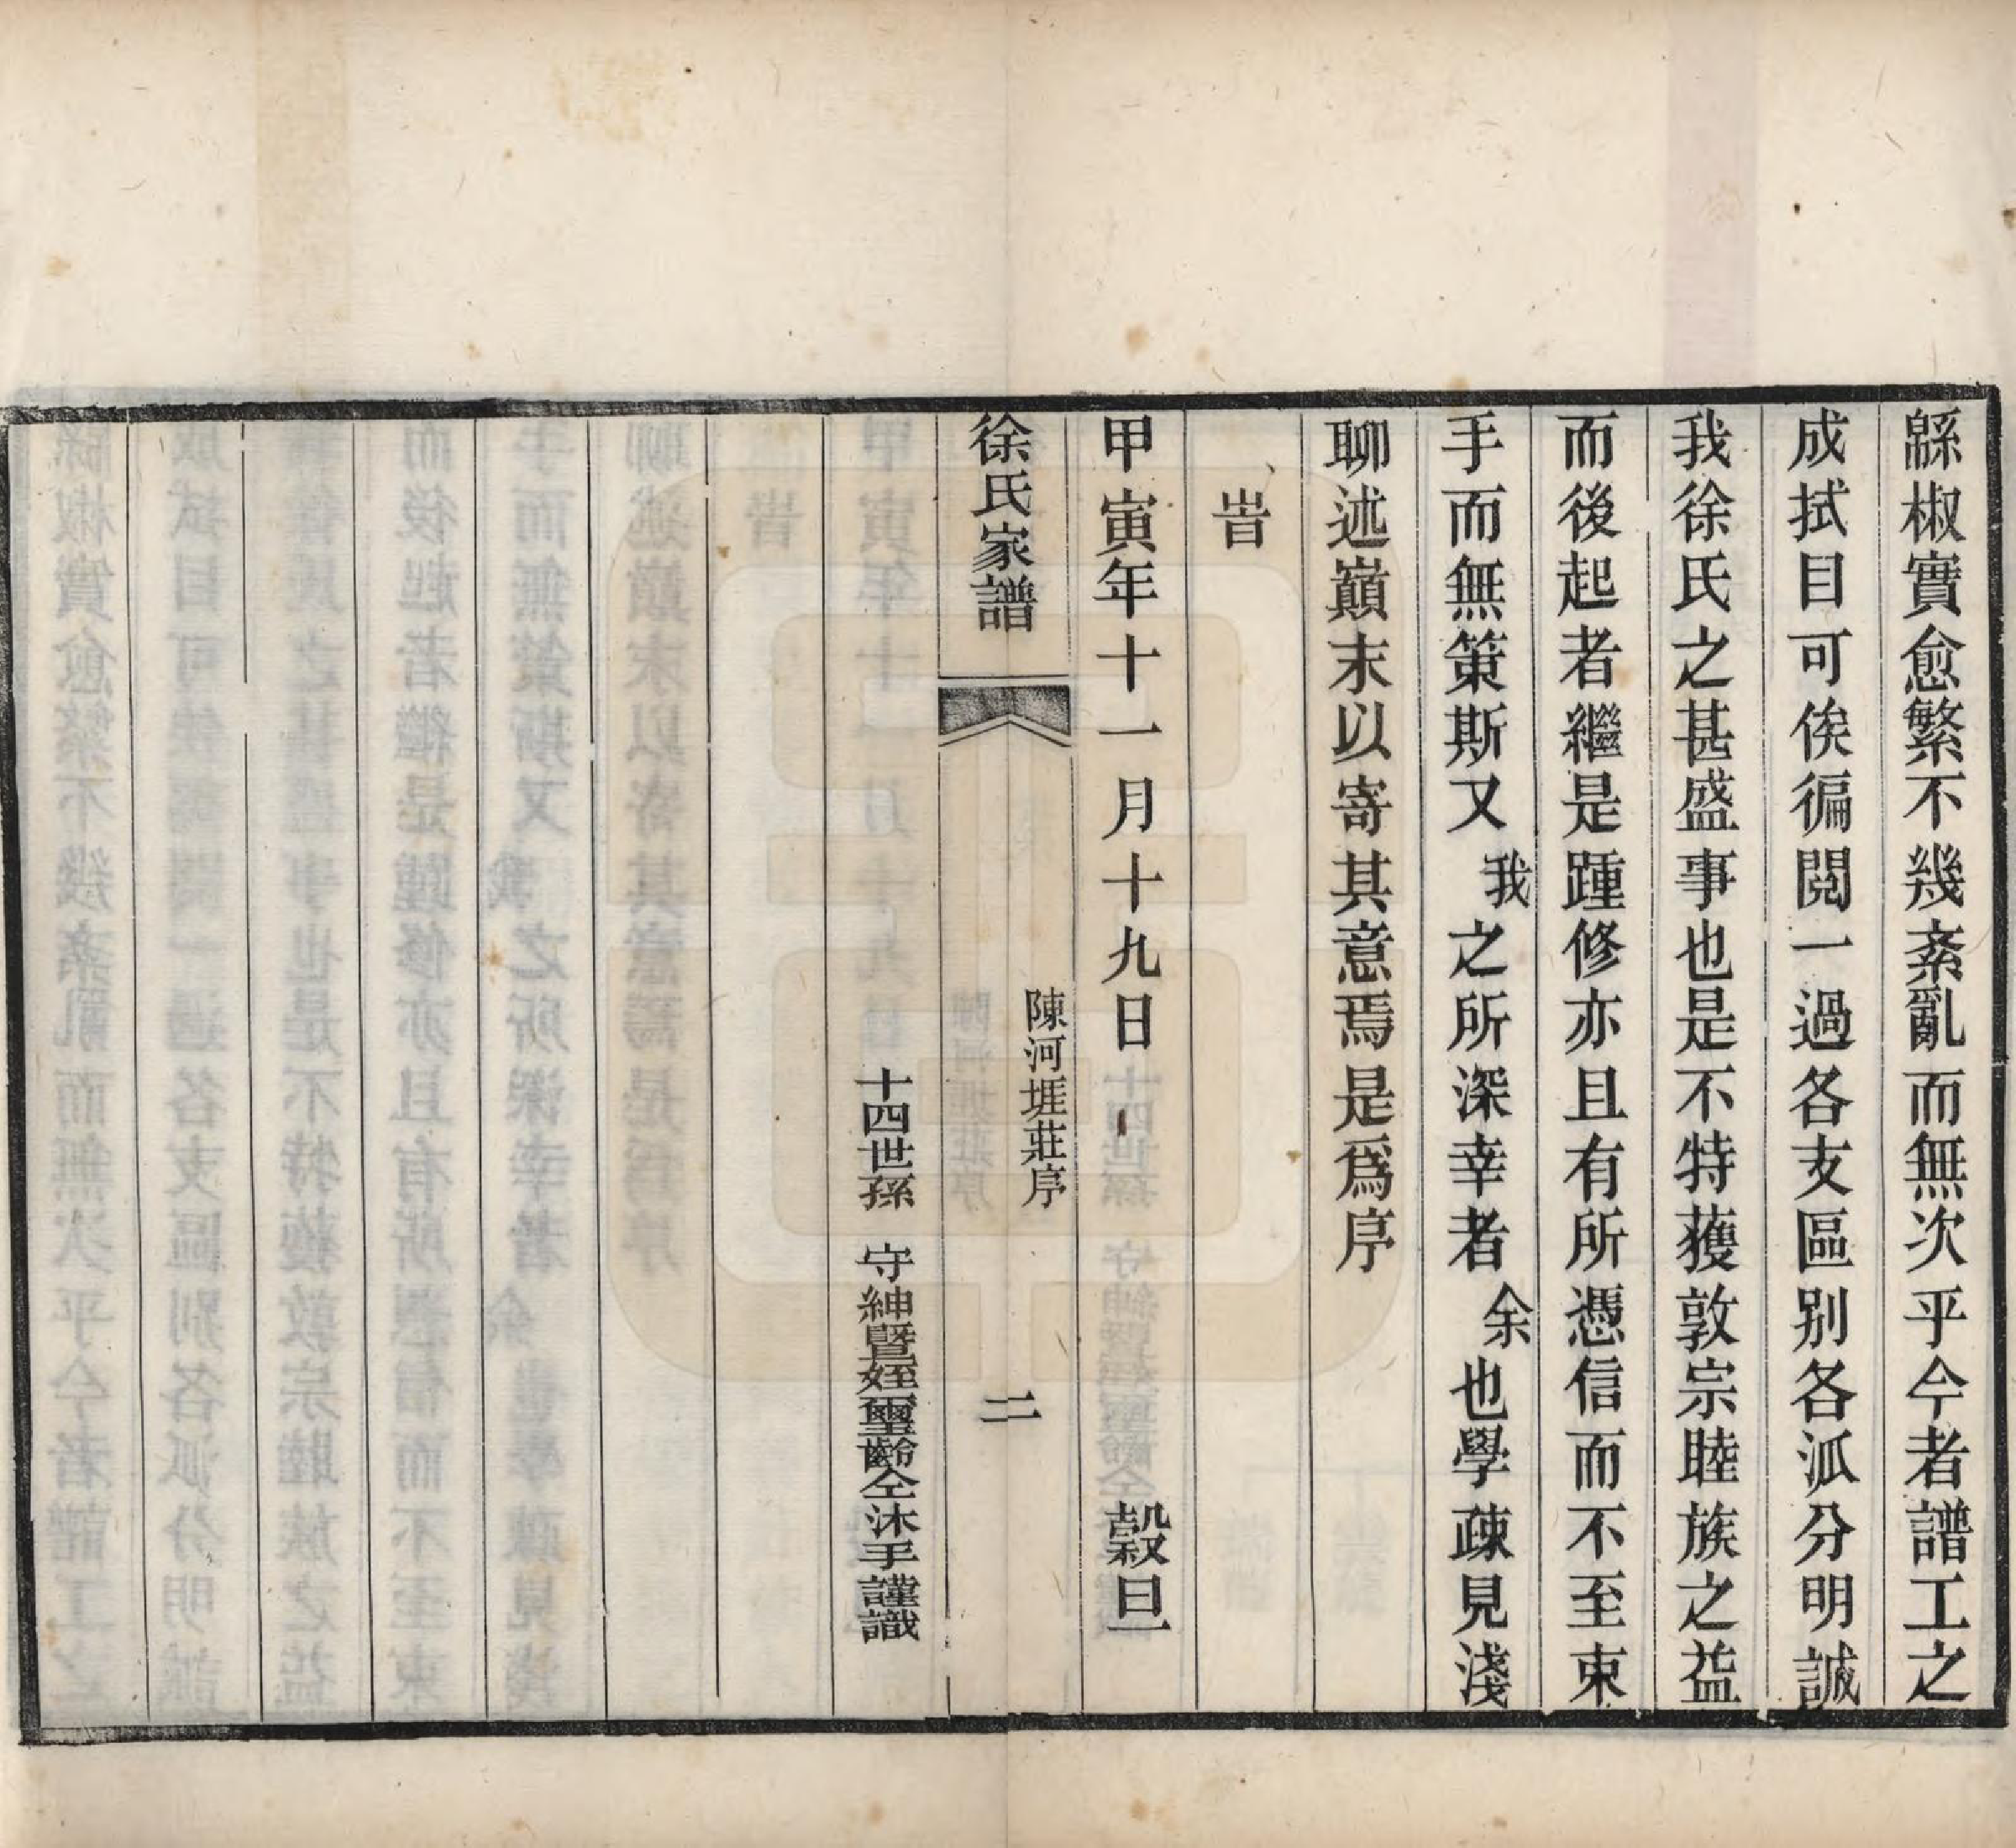 緜椒實愈繁不幾紊亂而無次乎今者譜工之
成拭目可俟徧閱一過各支區别各派分明誠
我徐氏之甚盛事也是不特獲敦宗睦族之益
而後起者繼是踵修亦且有所憑信而不至束
手而無策斯又我之所深幸者余也學疎見淺
聊述巔末以寄其意焉是爲序
旹
甲寅年十一月十九日 穀旦
徐氏家譜 陳河堐莊序 二
十四世孫 守紳暨姪璽齡仝沐手謹識